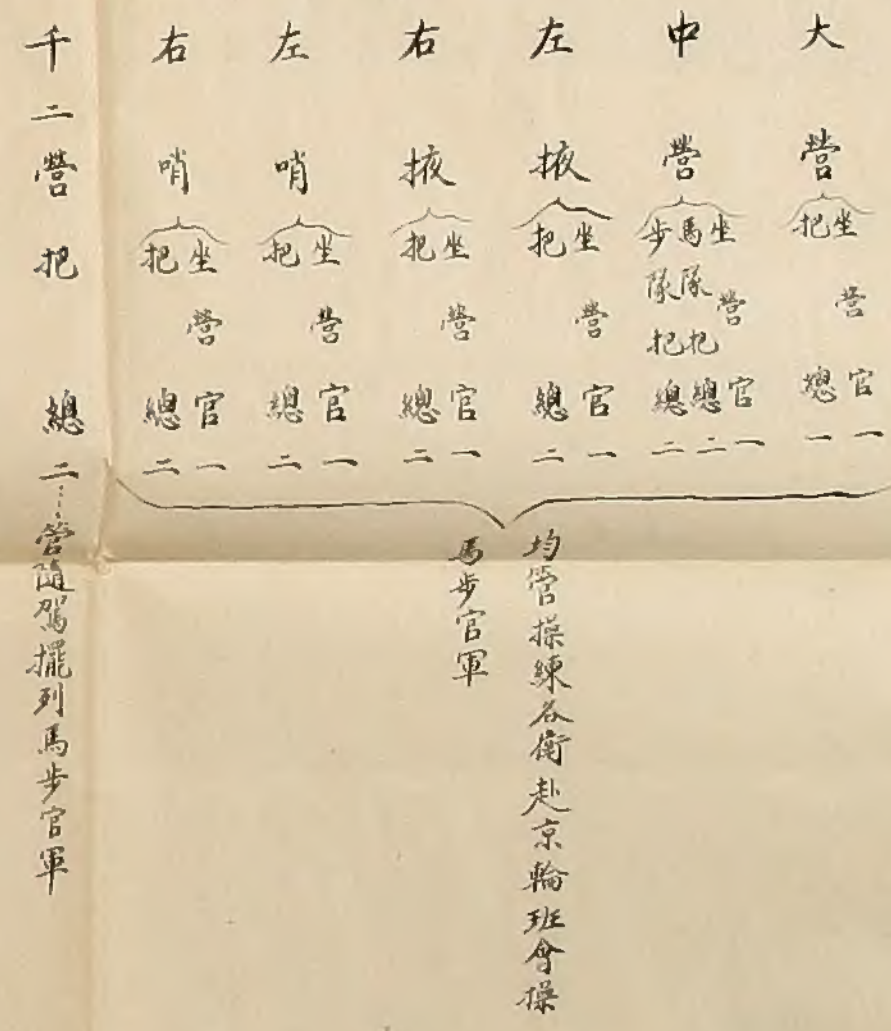 大營
坐營官一
把總一
中營
坐營官一
馬隊把總二
步隊把總二
左掖
坐營官一
把總二
右掖
坐營官一
把總二
左哨
坐營官一
把總二
右哨
坐營官一
把總二
均管操練各衛赴京輪班會操
馬步官軍
千二營把總二……管隨駕擺列馬步官軍